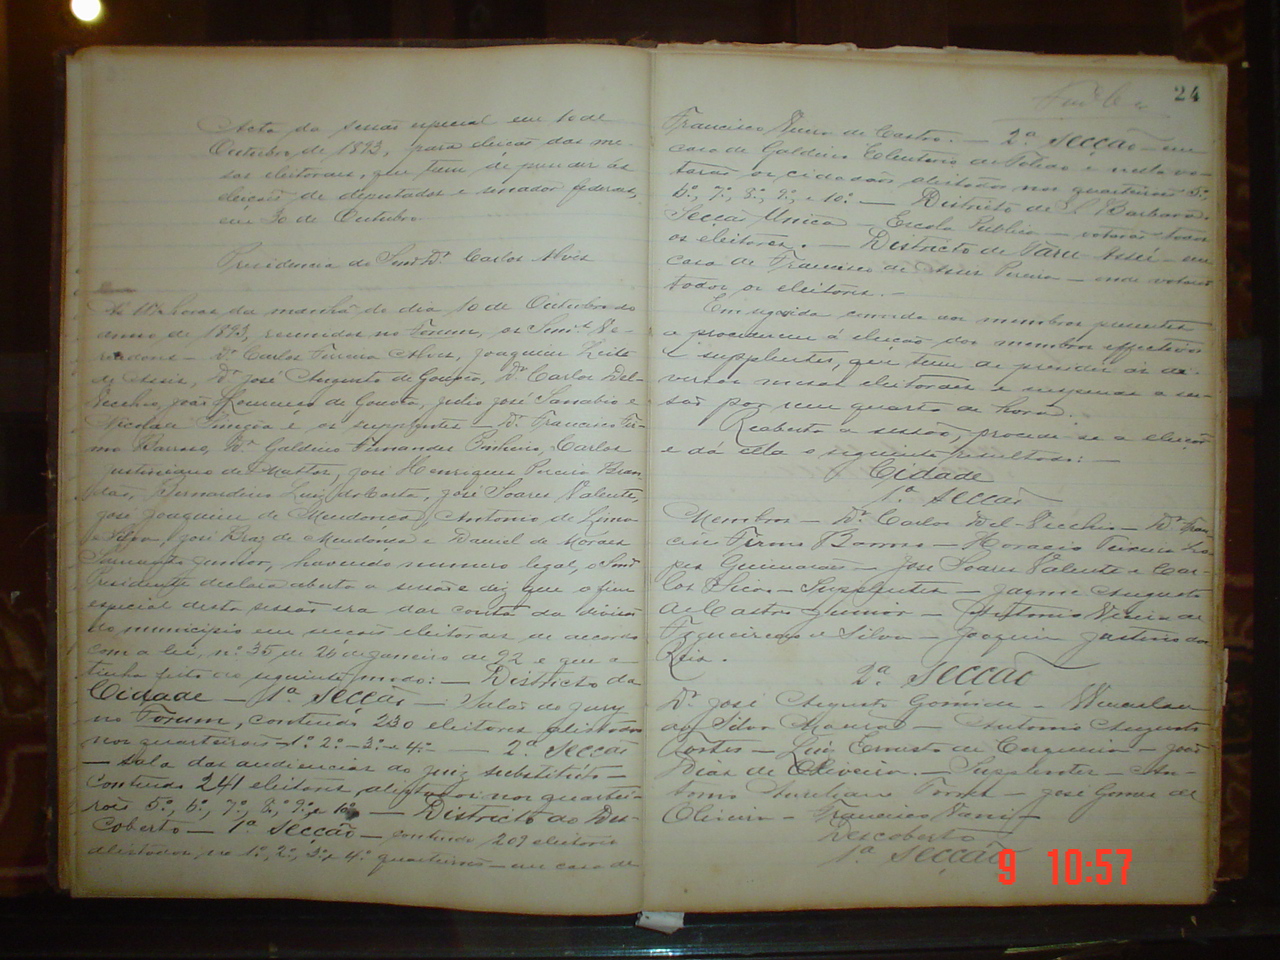 Acta da sessão especial em 10 de
Outubro de 1893, para eleição das me-
sas eleitoraes, que tem de presidir ás
eleições de deputados e senador federaes,
em 30 de Outubro.
Presidencia do Snr. Dr. Carlos Alves
horas da manhã do dia 10 de Outubro do
anno de 1893, reunidos no Forum, os Snrs. Ve-
readores - Dr. Carlos Ferreira Alves, Joaquim Leite
de Assis, Dr. José Augusto de Gouvêa, Dr. Carlos Del-
Vecchio, João de Gouvêa, Julio José Sanabio e
Nicolau e os supplentes - Dr. Francisco Fir-
mo Barroso, Dr. Galdino Fernandes Pinheiro, Carlos
Justiniano de Mattos, José Henriques Pereira Bran-
dão, Bernardino Luiz da Costa, José Soares Valente,
José Joaquim de Mendonça, Antonio de Lima
e Silva, José Braz de Mendonça e Daniel de Moraes
Junior, havendo numero legal, o Snr.
Presidente declara aberta a sessão e diz que o fim
especial desta sessão era dar conta da divisão
do municipio em secções eleitoraes de accordo
com a lei, n.º 35 de 26 de Janeiro de 92 e que a
tinha feito do seguinte modo: - Districto da
Cidade - 1ª Secção - Salão do jury
no Forum, contendo 230 eleitores alistados
nos quarteirões - 1º, 2º - 3º e 4º - 2ª Secção
- sala das audiencias do juiz substituto -
contendo 241 eleitores, alistados nos quartei-
rões 5º, 6º, 7º, 8º, 9º e 10º - Districto do Des-
coberto - 1ª Secção - contendo 209 eleitores
alistados, no 1º, 2º, 3º e 4º quarteirões - em casa de
24
Francisco Vieira de Castro. - 2ª Secção - em
casa de Galdino Eleuterio de Toledo e nesta vo-
tarão os cidadãos alistados nos quarteirões 5º,
6º, 7º, 8º, 9º, e 10º - Districto de S. Barbara.
Secção Unica - Escola Publica - votarão todos
os eleitores. - Districto de Taru-Assú - em
casa de Francisco de Assis Pereira - onde votarão
todos os eleitores. -
Em seguida convida aos membros presentes
a procederem á eleição dos membros effectivos
e supplentes, que tem de presidir as di-
versas mesas eleitoraes e suspende a ses-
são por um quarto de hora.
Reaberta a sessão, procede-se a eleição
e dá ella o seguinte resultado: -
Cidade
1ª Secção
Membros - Dr. Carlos Del-Vecchio - Dr. Fran-
cisco Firmo Barroso - Horacio Teixeira Lo-
pes Guimarães - José Soares Valente e Car-
los - Supplentes - Jayme Augusto
de Castro Junior - Antonio Vieira de
Figueiredo e Silva - Joaquim Justino dos
Reis.
2ª Secção
Dr. José Augusto Gomide - Wenceslau
da Silva - Antonio Augusto
Fortes - Luiz Ernesto de Cerqueira - João
Dias de Oliveira. - Supplentes - An-
tonio Aureliano Torres - José Gomes de
Oliveira - Francisco -
Descoberto
1ª Secção
9 10:57